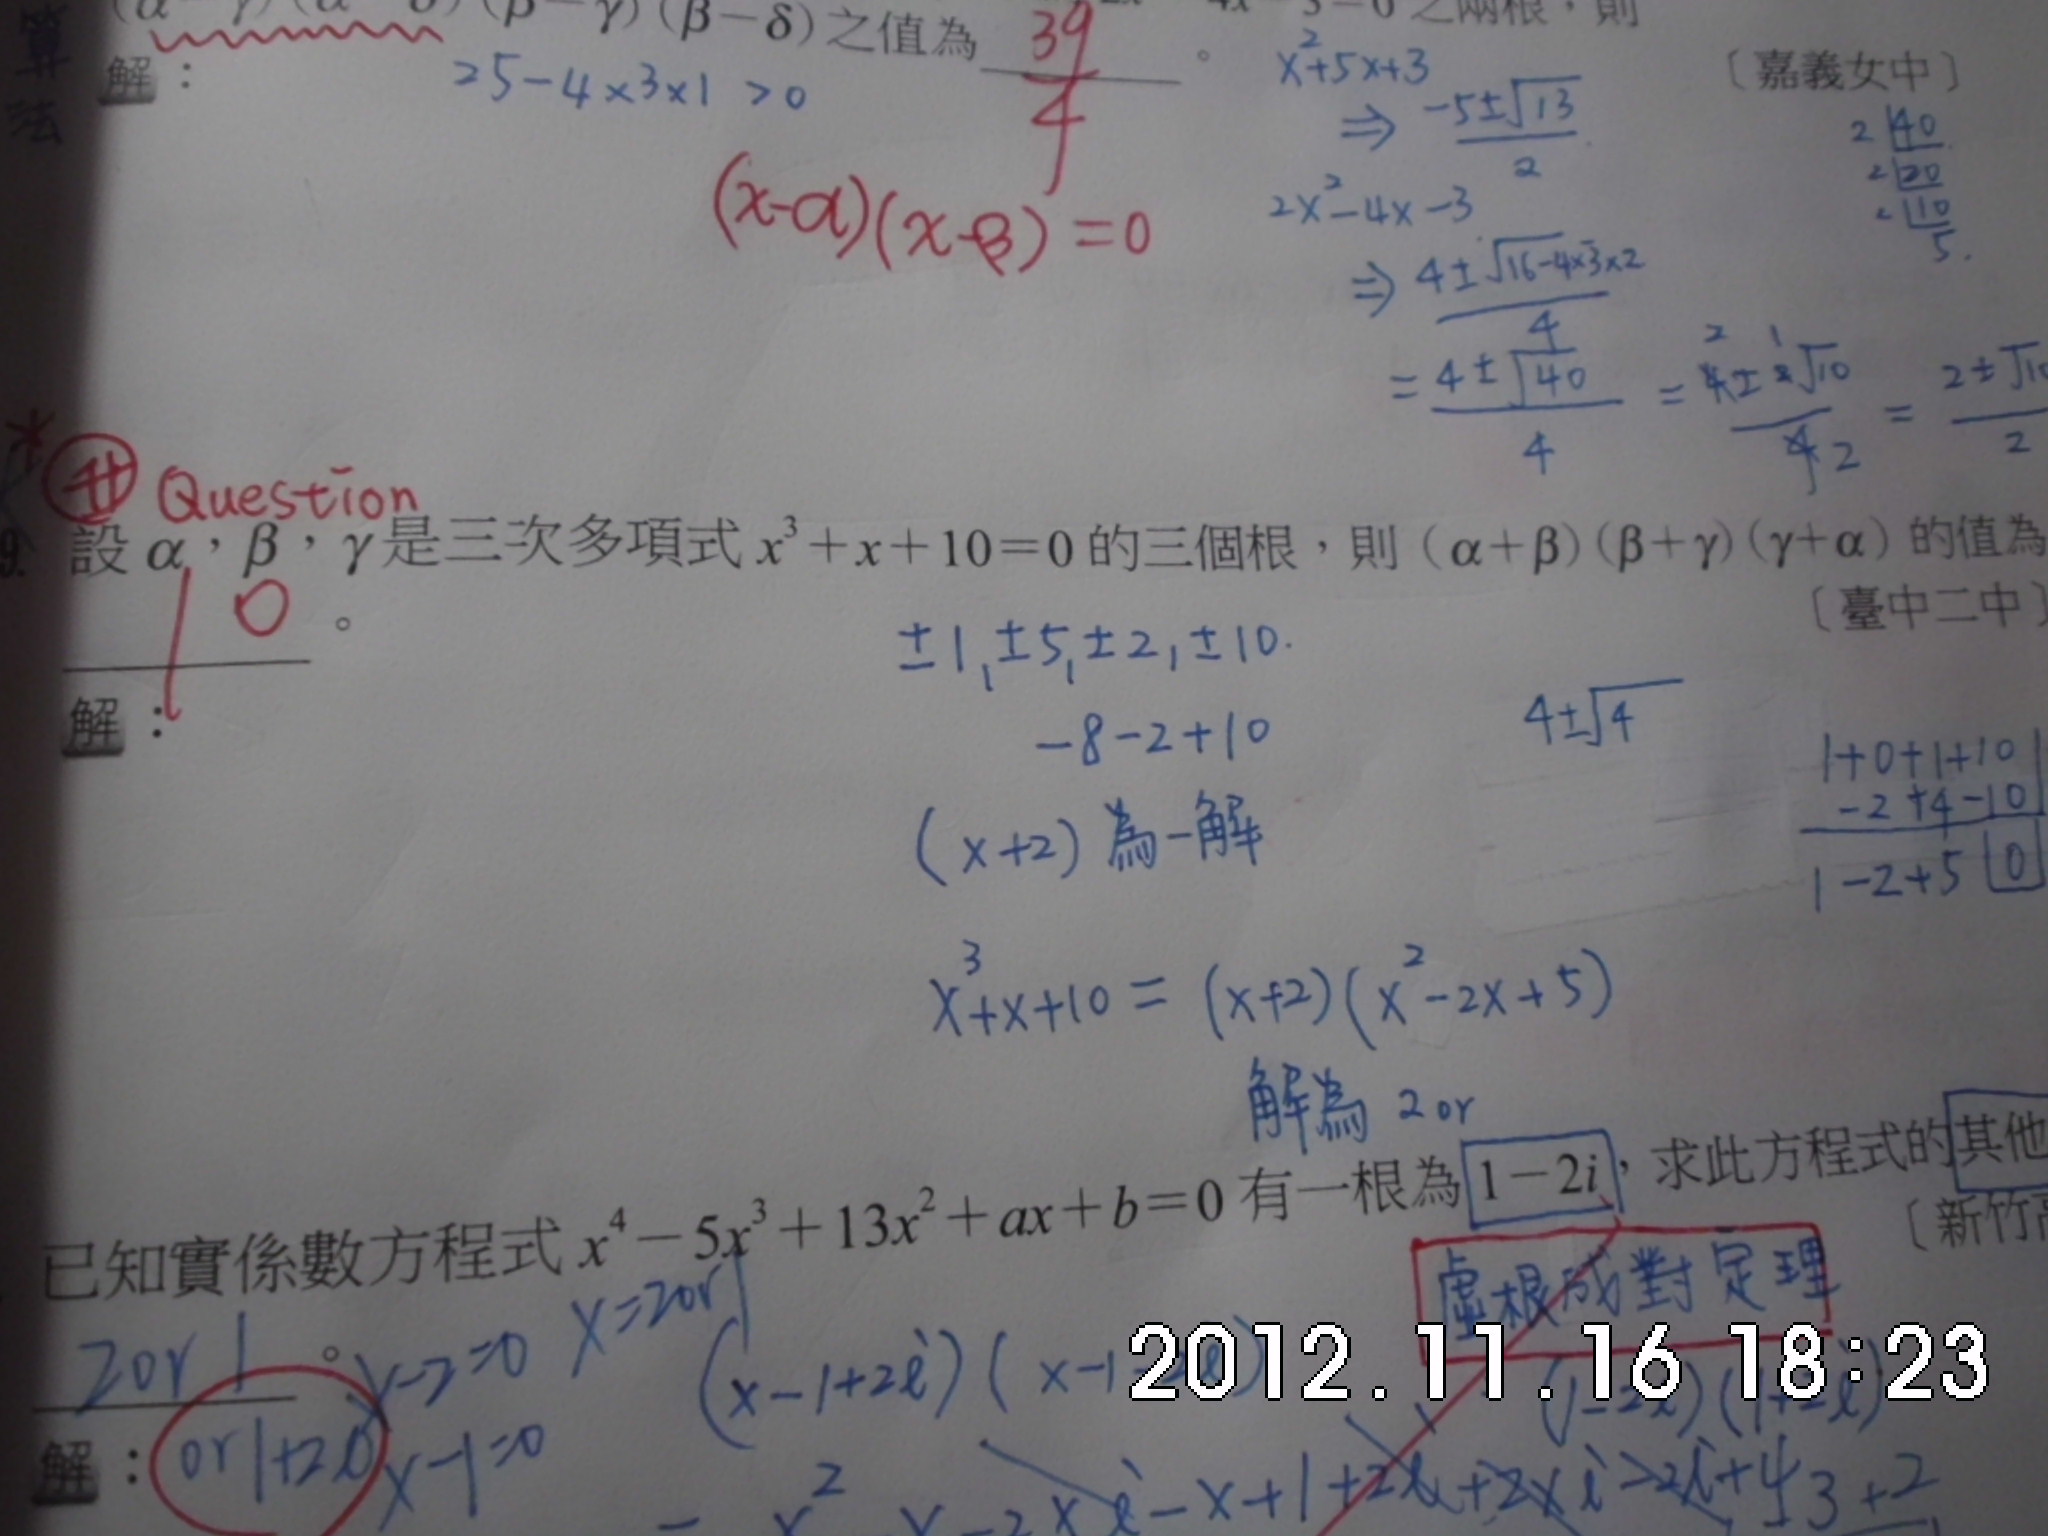 (β－γ)(β－δ)之值為 39/4 。
之兩根，則
〔嘉義女中〕
算法
解：
25-4×3×1 >0
x²+5x+3
⇒ -5±√13 / 2
2x²-4x-3
⇒ 4±√16-4×3×2 / 4
= 4±√40 / 4 = 4±2√10 / 4 2 = 2±√10 / 2
2 40
2 20
2 10
5.
(x-α)(x-β)=0
Question
9. 設 α，β，γ是三次多項式 x³＋x＋10＝0 的三個根，則（α＋β）（β＋γ）（γ＋α）的值為
10 。
〔臺中二中〕
解：
±1,±5,±2,±10.
-8-2+10
4±√4
(x+2)為一解
1+0+1+10
-2+4-10
1-2+5 0
x³+x+10=(x+2)(x²-2x+5)
解為 2 or
已知實係數方程式 x⁴－5x³＋13x²＋ax＋b＝0 有一根為 1－2i，求此方程式的其他
〔新竹高
虛根成對定理
2 or 1 。
x-2=0
x=2or1
(x-1+2i)(x-1-2i)
(1-2i)(1+2i)
解：
or 1+2i
x-1=0
2012.11.16 18:23